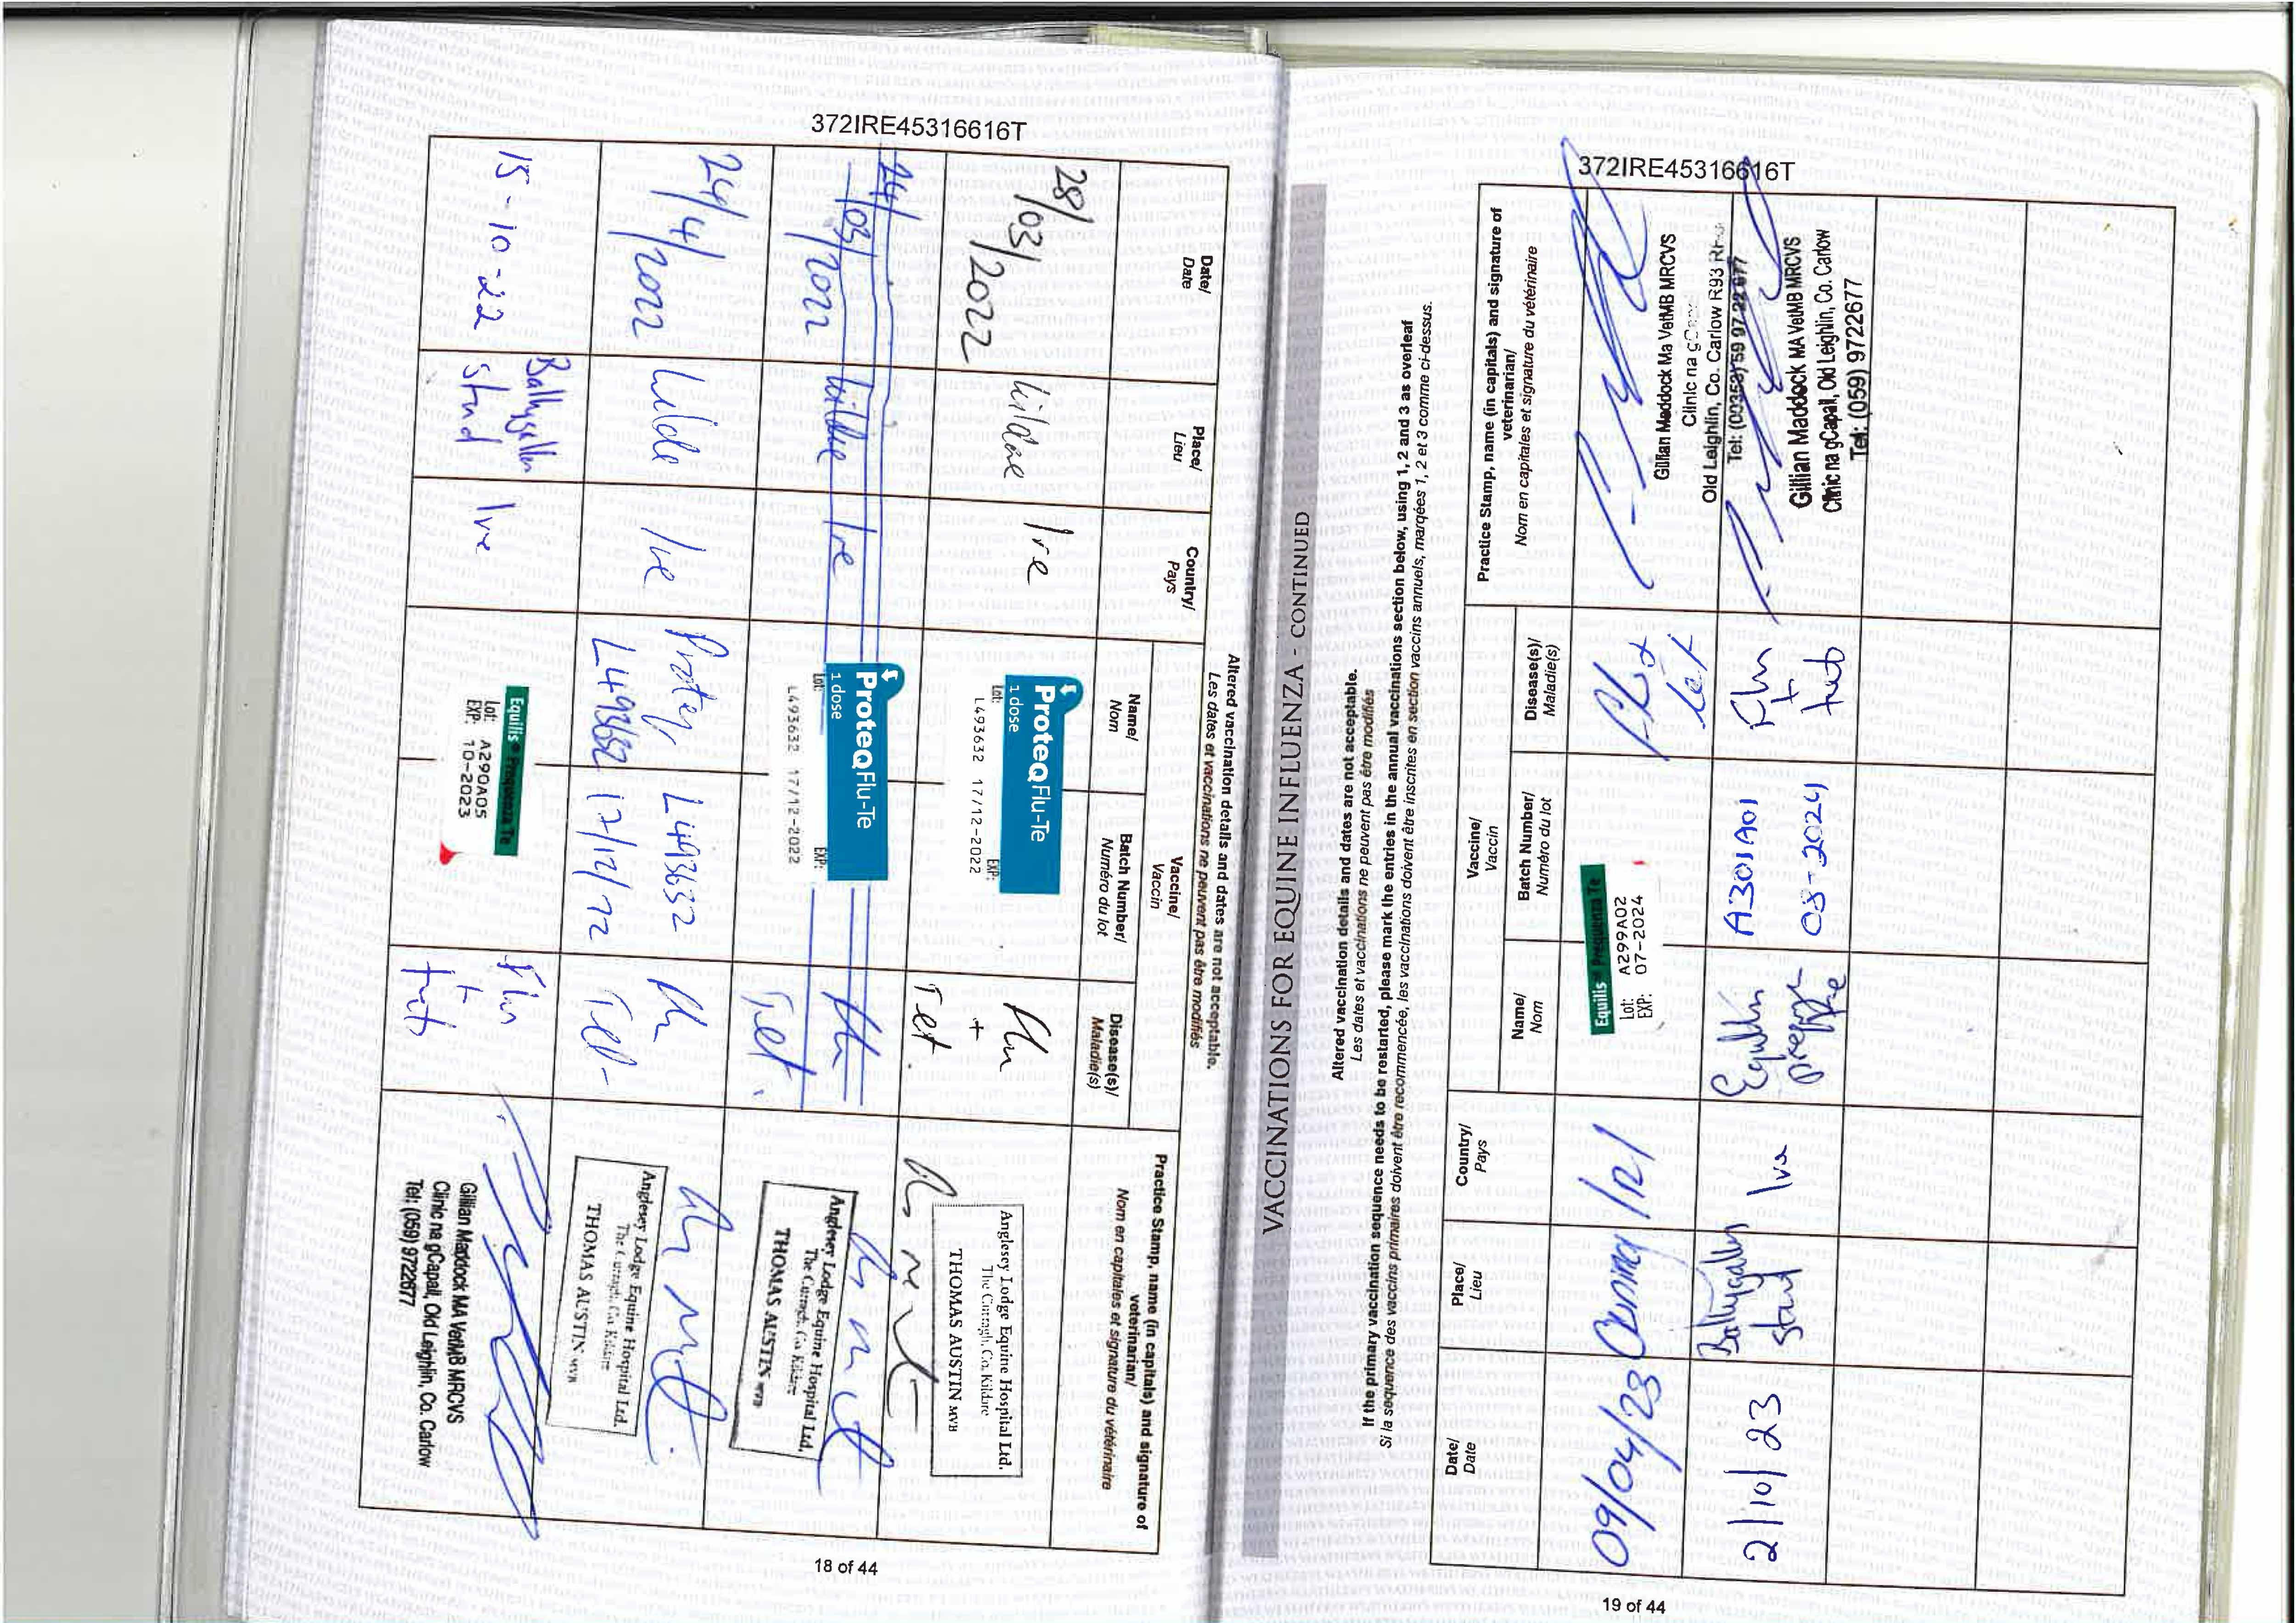 372IRE45316616T
Altered vaccination details and dates are not acceptable.
Les dates et vaccinations ne peuvent pas être modifiés
Date/
Date
Place/
Lieu
Country/
Pays
Vaccine/
Vaccin
Name/
Nom
Batch Number/
Numéro du lot
Disease(s)/
Maladie(s)
Practice Stamp, name (in capitals) and signature of
veterinarian/
Nom en capitales et signature du vétérinaire
28/03/2022
Kildare
Ire
ProteqFlu-Te
1 dose
Lot: EXP:
L493632 17/12-2022
Flu
+
Tet.
Anglesey Lodge Equine Hospital Ltd.
The Curragh, Co. Kildare
THOMAS AUSTIN MVB
24/03/2022
Kildare
Ire
ProteqFlu-Te
1 dose
Lot: EXP:
L493632 17/12-2022
Flu
Tet.
Anglesey Lodge Equine Hospital Ltd.
The Curragh, Co. Kildare
THOMAS AUSTIN MVB
24/4/2022
Ire
Proteq L493632
L493632 17/12/22
Flu
Tet-
Anglesey Lodge Equine Hospital Ltd.
The Curragh, Co. Kildare
THOMAS AUSTIN MVB
15-10-22
Ballygallon
Stud
Ire
Equilis® Prequenza Te
Lot: A290A05
EXP: 10-2023
Flu
+
tet
Gillian Maddock MA VetMB MRCVS
Clinic na gCapall, Old Leighlin, Co. Carlow
Tel: (059) 9722677
18 of 44
VACCINATIONS FOR EQUINE INFLUENZA - CONTINUED
Altered vaccination details and dates are not acceptable.
Les dates et vaccinations ne peuvent pas être modifiés
If the primary vaccination sequence needs to be restarted, please mark the entries in the annual vaccinations section below, using 1, 2 and 3 as overleaf
Si la sequence des vaccins primaires doivent être recommencée, les vaccinations doivent être inscrites en section vaccins annuels, marqées 1, 2 et 3 comme ci-dessus.
Date/
Date
Place/
Lieu
Country/
Pays
Vaccine/
Vaccin
Name/
Nom
Batch Number/
Numéro du lot
Disease(s)/
Maladie(s)
Practice Stamp, name (in capitals) and signature of
veterinarian/
Nom en capitales et signature du vétérinaire
09/04/23
IRL
Equilis® Prequenza Te
Lot: A299A02
EXP: 07-2024
Flu +
tet
Gillian Maddock Ma VetMB MRCVS
Clinic na gCapall
Old Leighlin, Co. Carlow R93
Tel: (00353) 59 97 22 677
2/10/23
Ballygallon
Stud
Ire
A301A01
08-2024
Flu
+
tet
Gillian Maddock MA VetMB MRCVS
Clinic na gCapall, Old Leighlin, Co. Carlow
Tel: (059) 9722677
372IRE45316616T
19 of 44